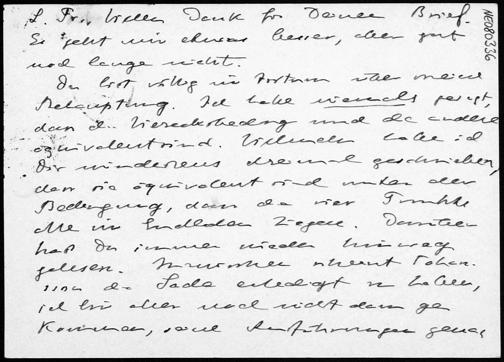 L. Fr., Vielen Dank für Deinen Brief.
Es geht mir etwas besser, aber gut
noch lange nicht.
Du bist völlig im Irrtum über meine
Behauptung. Ich habe niemals gesagt,
dass die Vierecksbedong und die andere
äquivalent sind. Vielmehr habe ich
Dir mindestens dreimal geschrieben,
dass sie äquivalent sind unter der
Bedingung, dass die vier Punkte
alle im Endlichen liegen. Darüber
hast Du immer wieder hinweg
gelesen. Inzwischen scheint Johan
die Sache erledigt zu haben,
ich bin aber noch nicht dazu ge
kommen, seine Ausführungen genau
NE080336